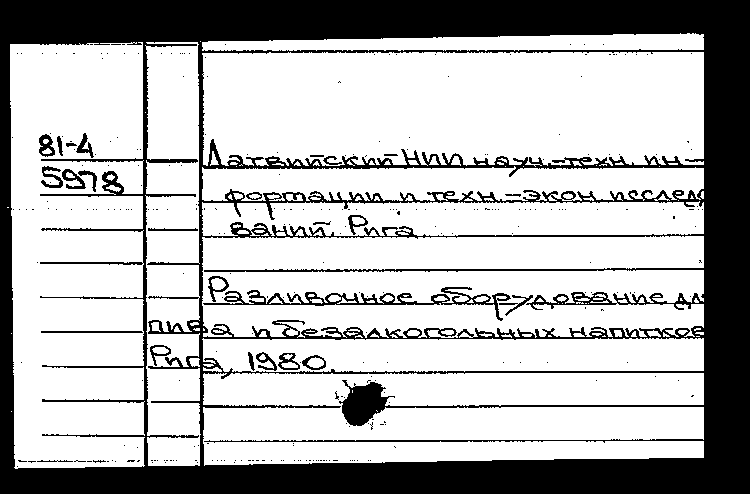 81-4
5978
Латвийский НИИ науч.-техн. ин-
формации и техн.-экон. исследо
ваний. Рига.
Разливочное оборудование для
пива и безалкогольных напитков
Рига, 1980.